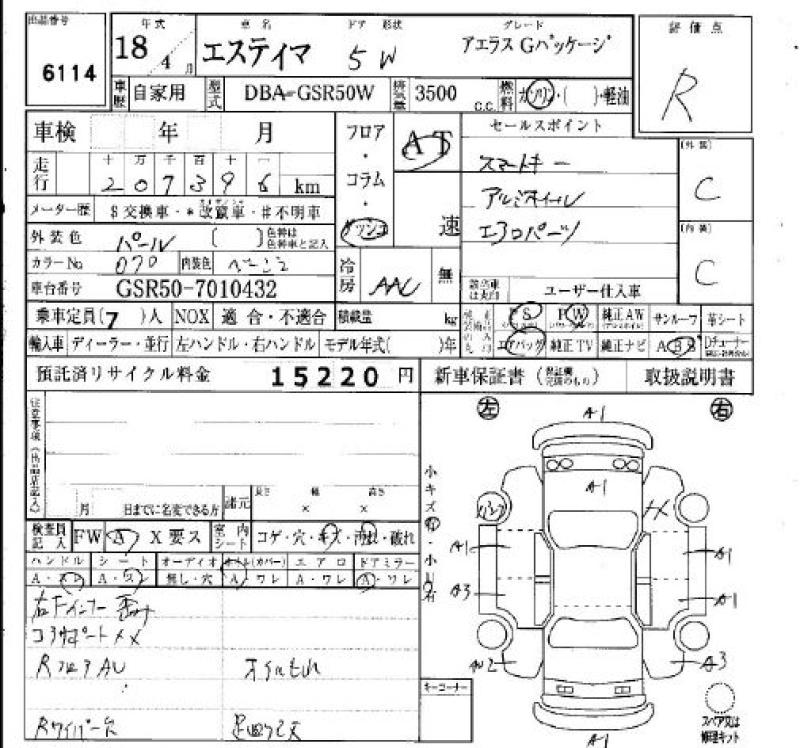 出品番号 年式 車名 ドア 形状 グレード 評価点
6114 18 / 4月 エスティマ 5 W アエラス Gパッケージ R
車歴 自家用 型式 DBA-GSR50W 排気量 3500 c.c. 燃料 ガソリン・( )・軽油
車検 年 月 フロア・コラム・ダッシュ AT 速 セールスポイント (外装) C
走行 十 万 千 百 十 一
2 0 7 3 9 6 km
スマートキー
アルミホイール
エアロパーツ
メーター歴 $交換車・*改竄車・#不明車
外装色 パール ( ) 色替は色替車と記入 (内装) C
カラーNo 070 内装色 ベージュ 冷房 AAC 無
車台番号 GSR50-7010432 ユーザー仕入車
乗車定員(7 )人 NOX 適合・不適合 積載量 kg PS PW 純正AW サンルーフ 革シート
輸入車 ディーラー・並行 左ハンドル・右ハンドル モデル年式( )年 エアバッグ 純正TV 純正ナビ ABS
預託済リサイクル料金 15220 円 新車保証書 取扱説明書
左 右
A1
A1
小キズ有・小凹有
月 日までに名変できる方 諸元 長さ × 幅 × 高さ
検査員記入 FW A X要ス 室内シート コゲ・穴・キズ・汚れ・破れ
ハンドル シート オーディオ ホイル(カバー) エアロ ドアミラー
A・スレ A・スレ 無し・穴 A・ワレ A・ワレ A・ワレ
XX
A1 A1
A3 A1
コアサポートXX
RフロアAU オイルもれ
A3
キーコーナー
Rワイパー欠
スペア又は
修理キット
A1